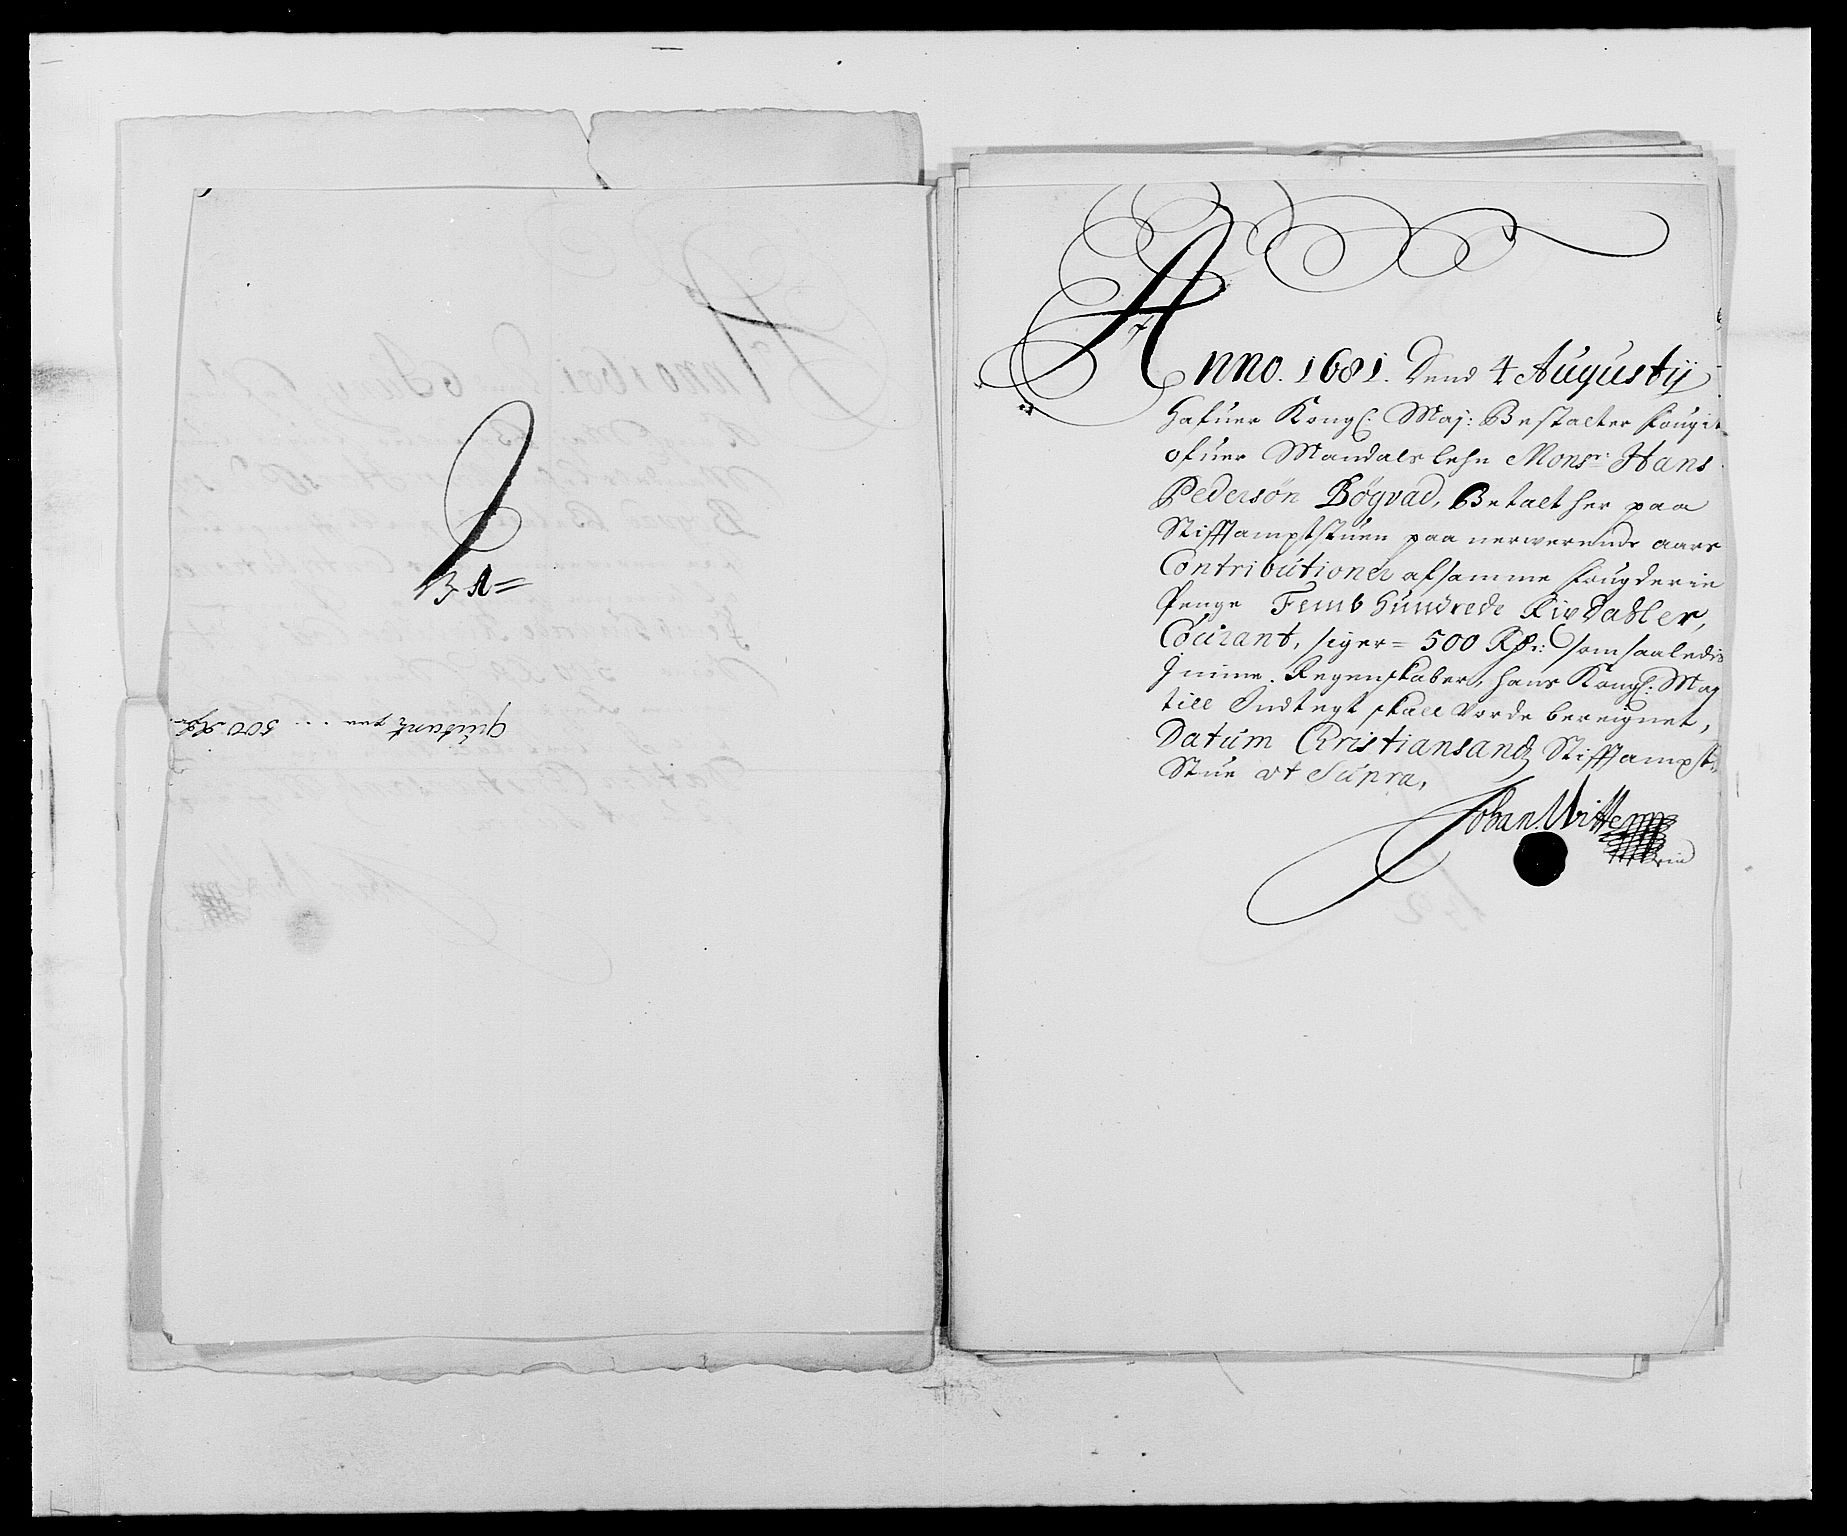 Quitantz paa ... 500 Rdr.
Anno. 1681. Dend 4 Augustij
Hafuer Kongl: Maj: Bestalter fougit
ofuer Mandals lehn Monsr: Hans
Pedersøn Bögvad, Betalt her paa
Stifftamptstuen paa nerwerende aars
Contributioner af samme fougderie
Penge Femb Hundrede Rixdaller,
Courant, siger = 500 Rdr: som saaledis
J mine Regenskaber, hans Kongl: May
till Indtegt skall vorde bereignet,
Datum Christiansandz Stifftampt-
Stue vt Supra,
Johan Wittem